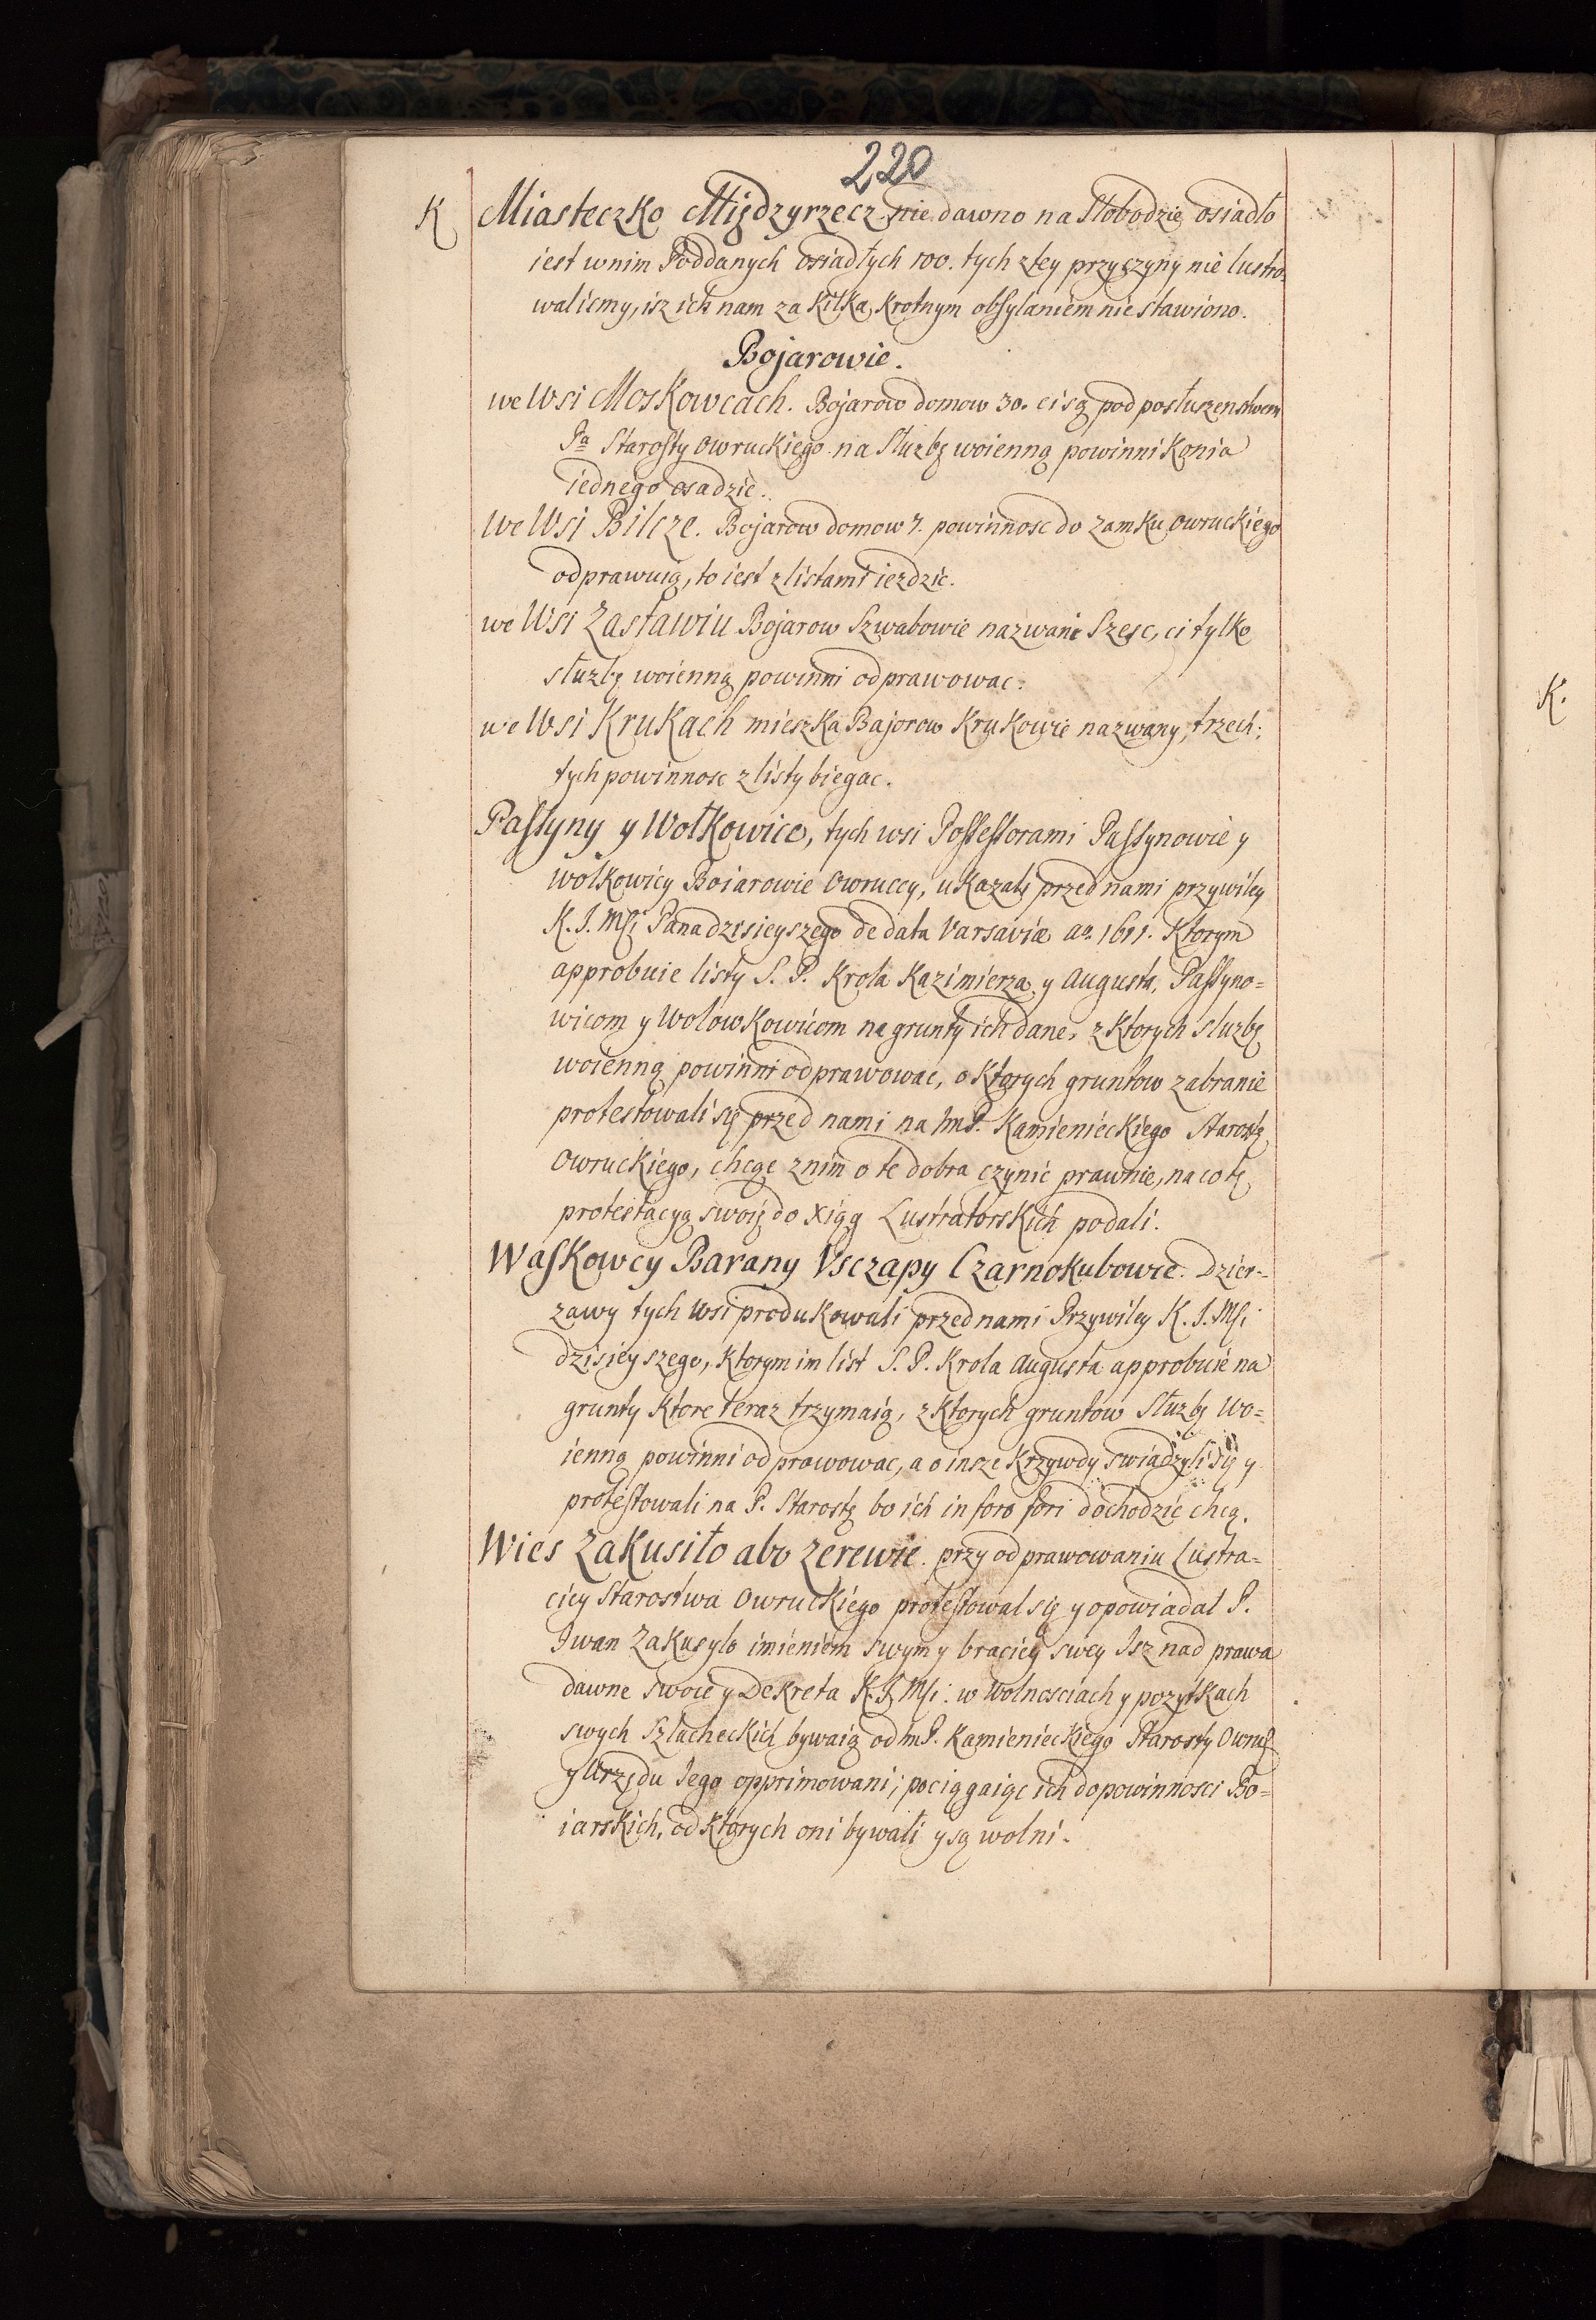 220
K Miasteczko Międzyrzecz nie dawno na Słobodzie osiadło
iest wnim Poddanych osiadłych 100. tych ztey przyczyny nie lustro-
walismy, isz ich nam za kilką krotnym obsylaniem nie stawiono.
Bojarowie.
we Wsi Moskowcach. Bojarow domow 30. ci są pod posłuszenstwem
Pa Starosty Owruckiego na Służbę woienną powinni Konia
iednego osadzic.
We Wsi Bilcze. Bojarow domow 7. powinnosc do Zamku Owruckiego
odprawuią, to iest z listami iezdzic.
we Wsi Zasławiu Bojarow Szwabowie nazwani Szesc, ci tylko
służbę woienną powinni odprawowac.
we Wsi Krukach mieszka Bajorow Krukowie nazwany, trzech;
tych powinnosc z listy biegac.
Passyny y Wołkowice, tych wsi Possessorami Passynowie y
Wołkowicy Boiarowie Owruccy, ukazali przed nami przywiley
K. J. Msci Pana dzisieyszego de data Varsaviæ ao. 1611. Ktorym
approbuie listy S. P. Krola Kazimierza y Augusta, Passyno=
wicom y Wolowkowicom na grunty ich dane, z ktorych sluzbę
woienną powinni odprawowac, o ktorych gruntow zabranie
protestowali się przed nami na JmP. Kamienieckiego Starostę
Owruckiego, chcąc znim o te dobra czynic prawnie, na co tę
protestacyą swoię do Xiąg Lustratorskich podali.
Waskowcy Barany Vsczapy Czarnokubowie. Dzier-
zawy tych wsi produkowali przed nami Przywiley K. J. Msci
dzisieyszego, ktorym im list S. P. Krola Augusta approbuie na
grunty ktore teraz trzymaią, z ktorych gruntow Służbę Wo=
ienną powinni odprawowac, a o insze krzywdy swiadzyli się y
protestowali na P. Starostę bo ich in foro fori dochodzic chcą.
Wies Zakusiło abo Zerewie. przy odprawowaniu Lustra=
ciey Starostwa Owruckiego protestował się y opowiadał P.
Iwan Zakusyło imieniem swym y braciey swey Isz nad prawa
dawne swoie y Dekreta K. J. Msci: w Wolnosciach y pozytkach
swych Szlacheckich bywaią od JmP. Kamienieckiego Starosty Owruc
y Urzędu Jego opprimowani; pociągaiąc ich do powinnosci Bo=
iarskich, od ktorych oni bywali y są wolni.
K.